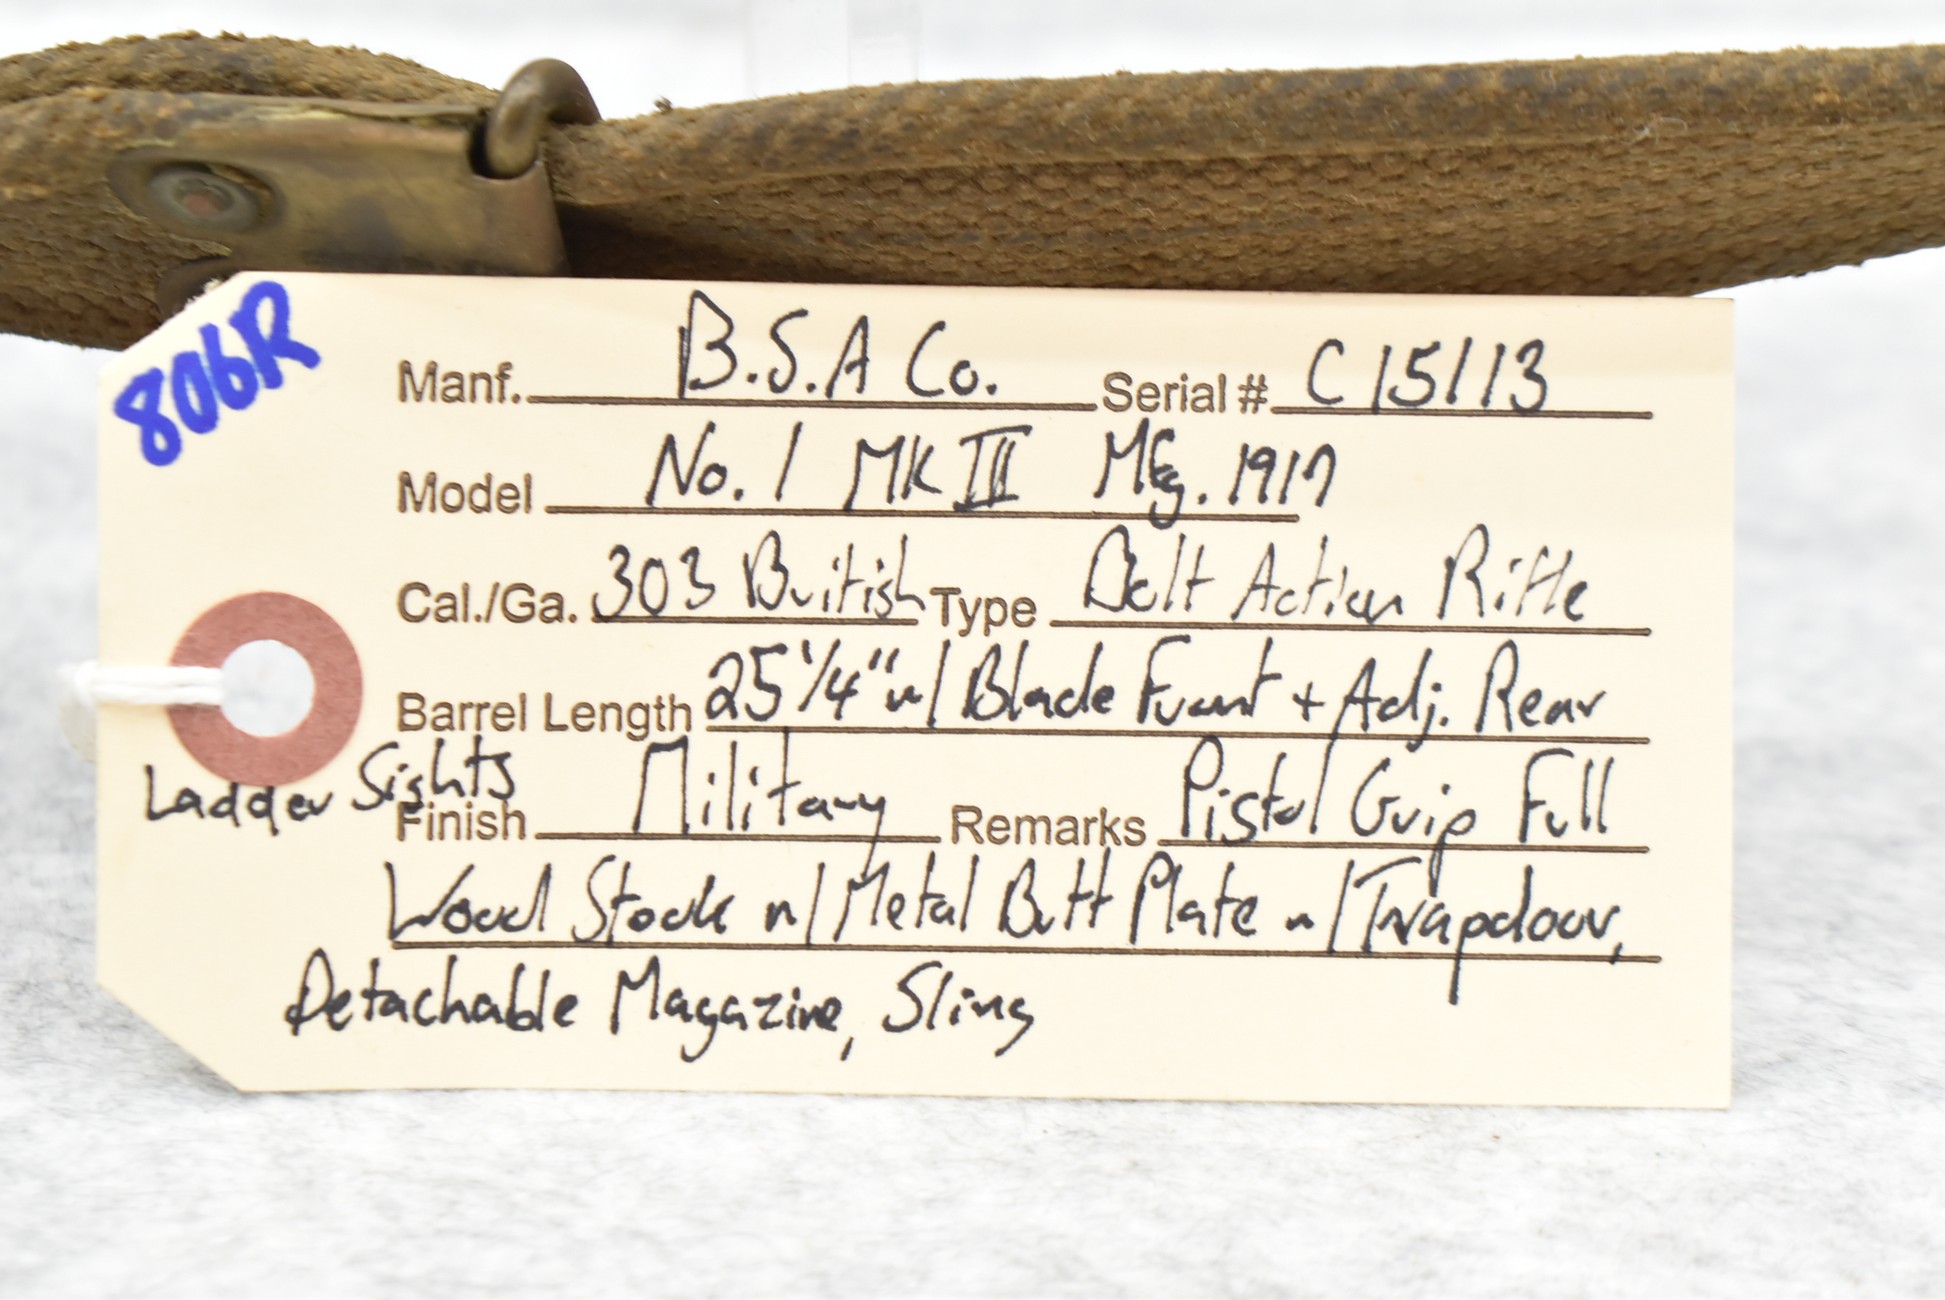 806R
Manf. B.S.A Co. Serial # C15113
Model No. 1 MK III Mfg. 1917
Cal./Ga. 303 British Type Bolt Action Rifle
Barrel Length 25 1/4" w/ Blade Front + Adj. Rear
Ladder Sights
Finish Military Remarks Pistol Grip Full
Wood Stock w/ Metal Butt Plate w/ Trapdoor,
Detachable Magazine, Sling